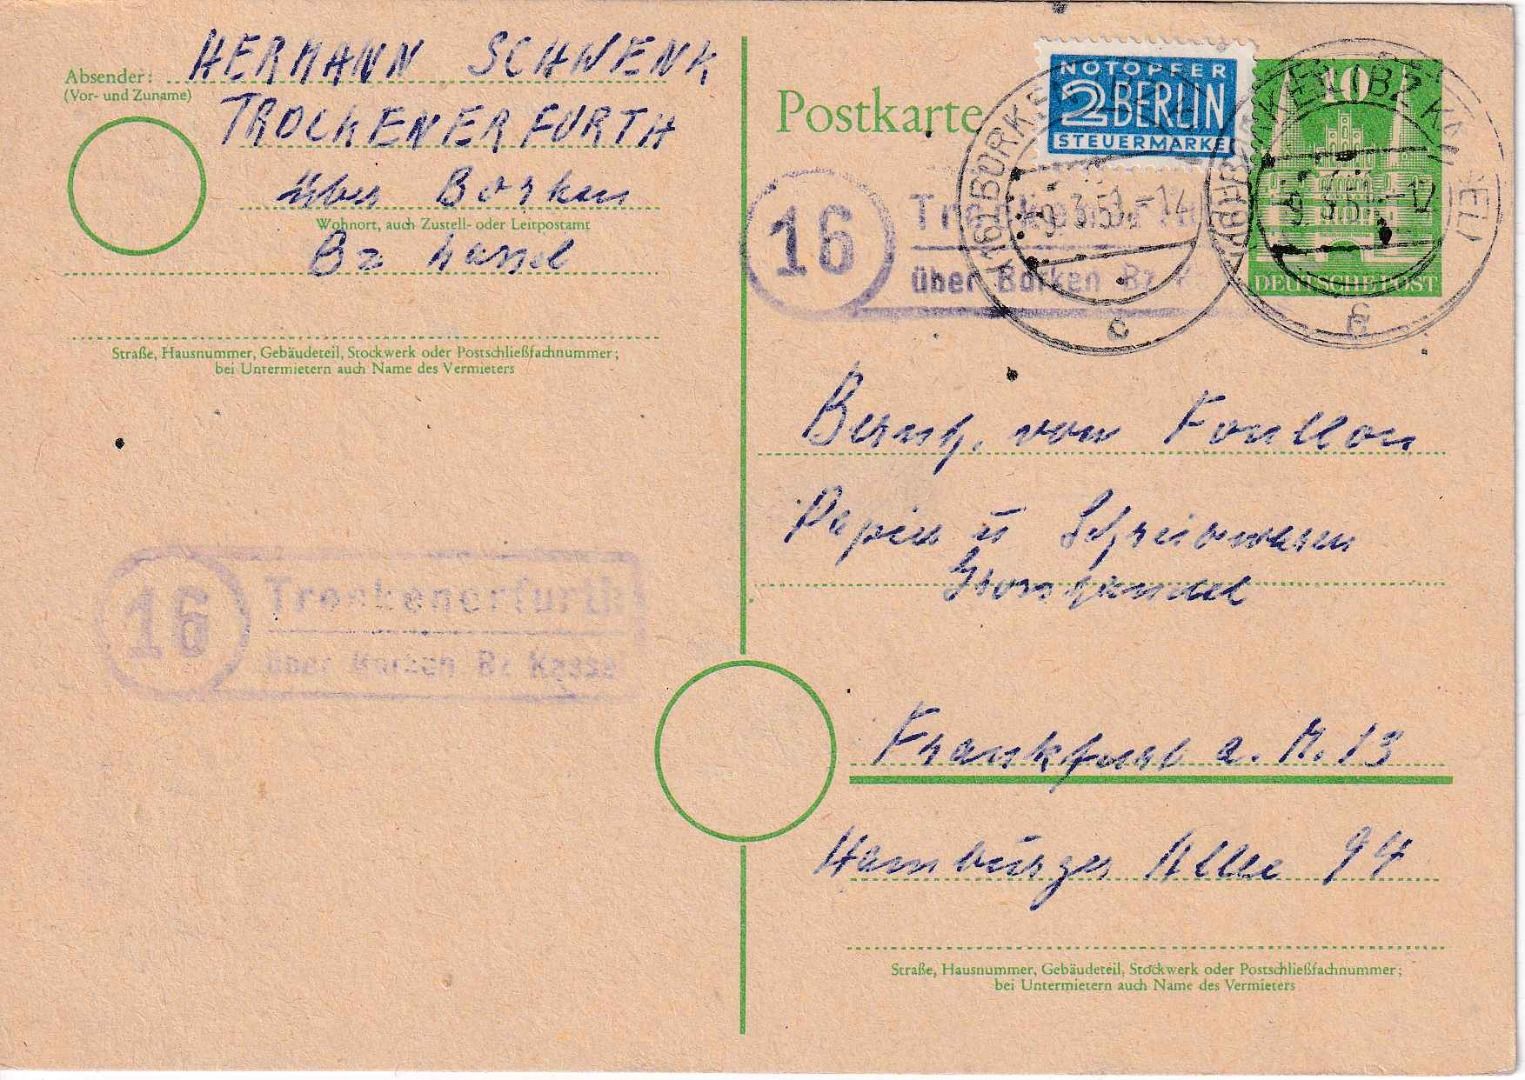 Absender:
(Vor- und Zuname)
HERMANN SCHWENK
TROCKENERFURTH
über Borken
Wohnort, auch Zustell- oder Leitpostamt
Bz Kassel
Straße, Hausnummer, Gebäudeteil, Stockwerk oder Postschließfachnummer;
bei Untermietern auch Name des Vermieters
16
Trockenerfurth
über Borken Bz Kassel
Postkarte
NOTOPFER
2 BERLIN
STEUERMARKE
10
DEUTSCHE POST
16
über Borken Bz
(16) BORKEN
9.3.51.-14
c
(16) BORKEN (BZ KASSEL)
9.3.51.-12
Bernh. von Foullon
Papier u Schreibwaren
Grosshandel
Frankfurt a. M. 13
Hamburger Allee 94
Straße, Hausnummer, Gebäudeteil, Stockwerk oder Postschließfachnummer;
bei Untermietern auch Name des Vermieters